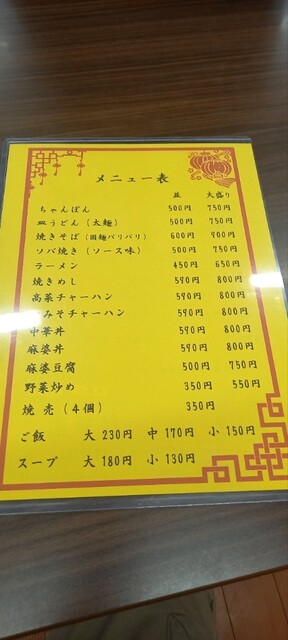 メニュー表
並 大盛り
ちゃんぽん 500円 750円
皿うどん（太麺） 500円 750円
焼きそば（固麺パリパリ） 600円 900円
ソバ焼き（ソース味） 500円 750円
ラーメン 450円 650円
焼きめし 590円 800円
高菜チャーハン 590円 800円
みそチャーハン 590円 800円
中華丼 590円 800円
麻婆丼 590円 800円
麻婆豆腐 500円 750円
野菜炒め 350円 550円
焼売（4個） 350円
ご飯 大 230円 中 170円 小 150円
スープ 大 180円 小 130円